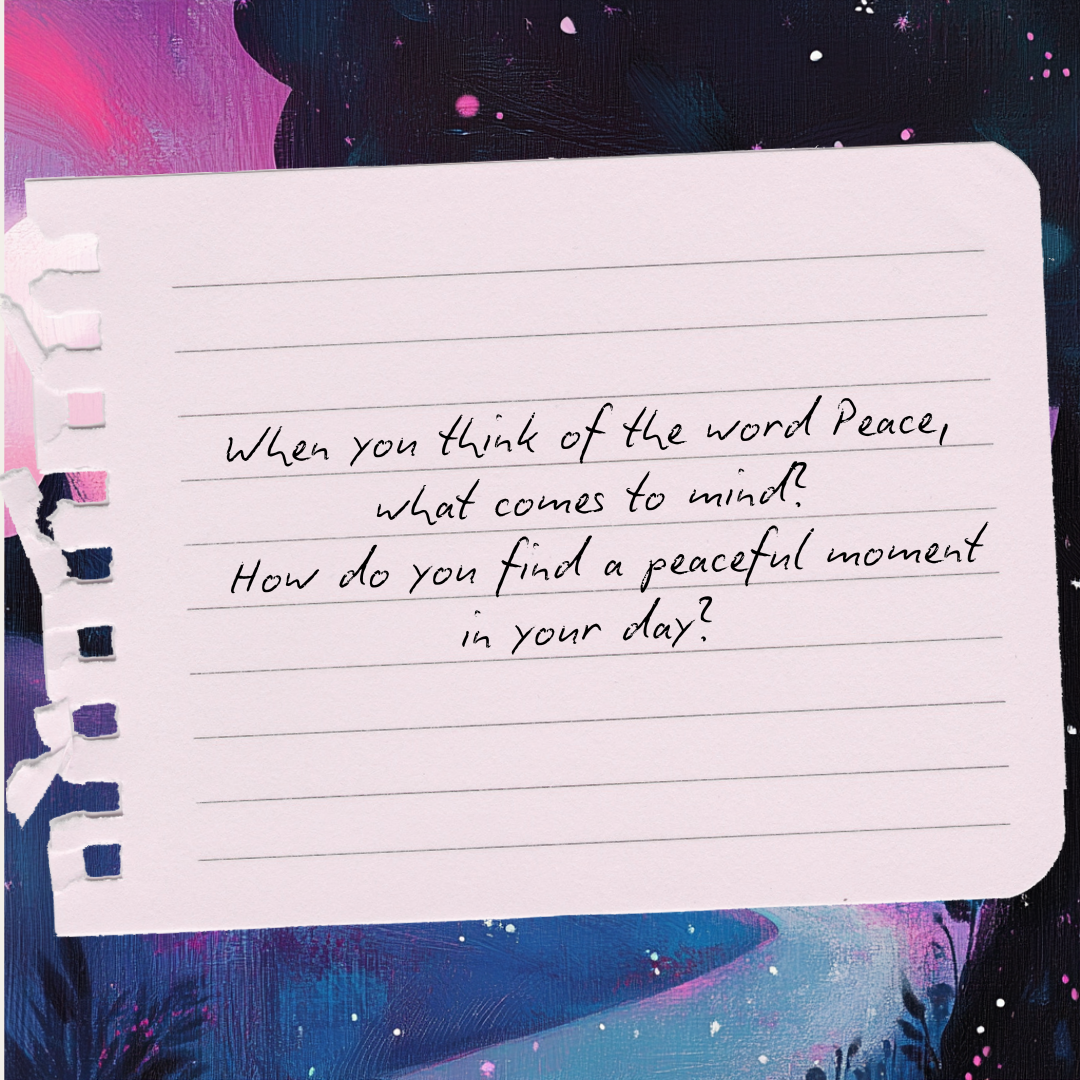 When you think of the word Peace,
what comes to mind?
How do you find a peaceful moment
in your day?